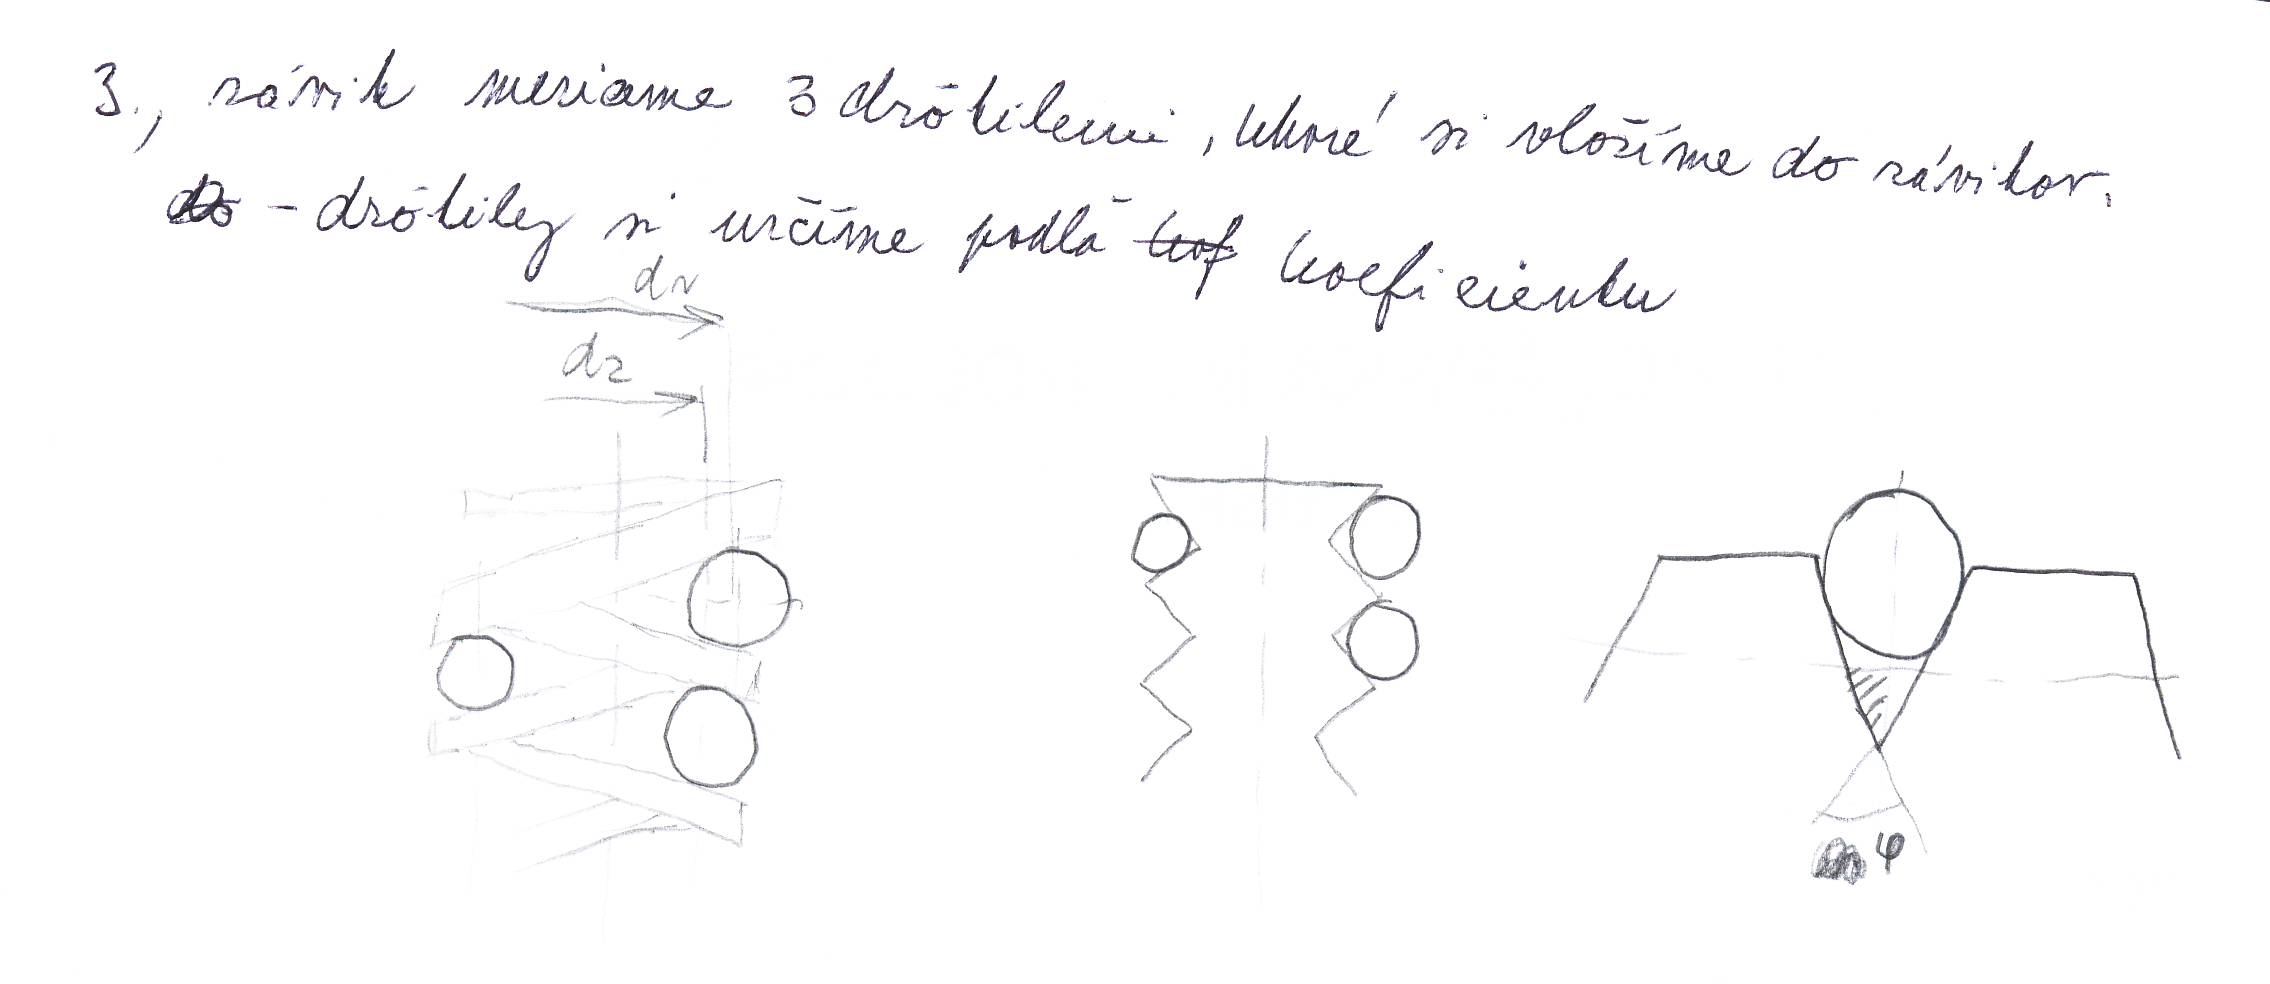 3., závit meriame 3 drôtikmi, ktoré si vložíme do závitov.
- drôtiky si určíme podlá koeficientu
dv
d2
φ